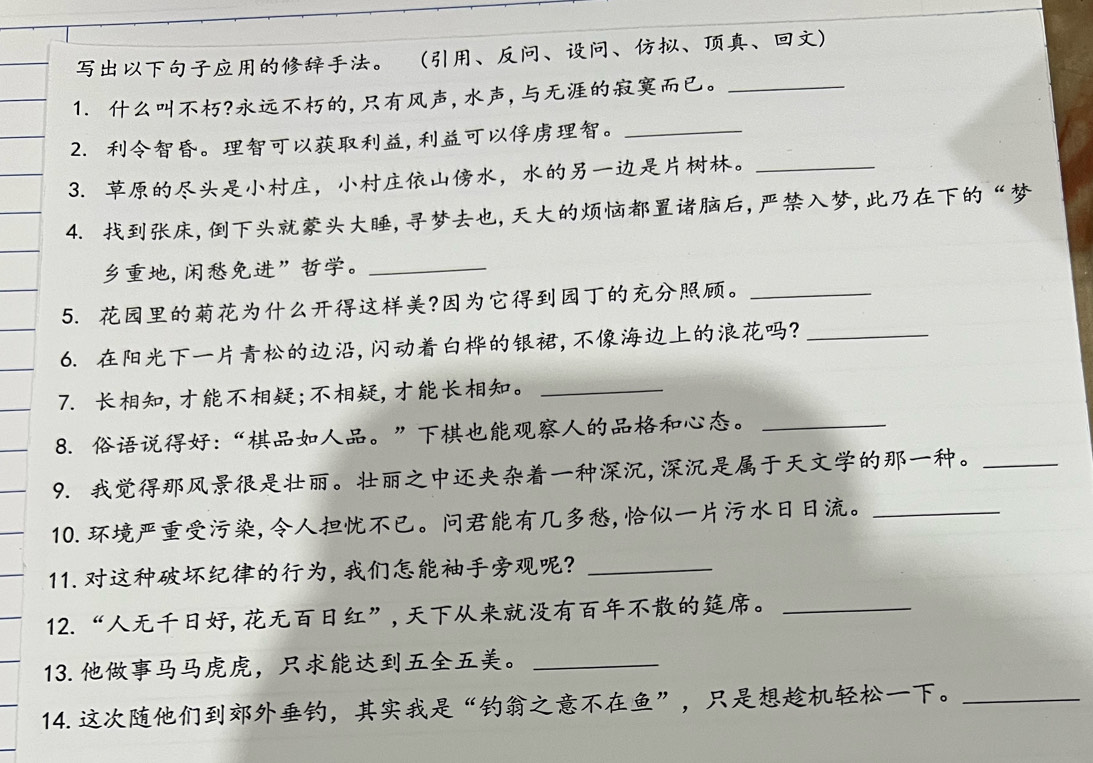 写出以下句子应用的修辞手法。 (引用、反问、设问、仿拟、顶真、回文)
1. 什么叫不朽?永远不朽的,只有风声,水声,与无涯的寂寞而已。
2. 利令智昏。理智可以获取利益,利益可以俘虏理智。
3. 草原的尽头是小村庄，小村庄依山傍水，水的另一边是片树林。
4. 找到张床,倒下头就蒙头大睡,寻梦去也,天大的烦恼都置诸脑后,严禁入梦,此乃在下的“梦
乡重地,闲愁免进”哲学。
5. 花园里的菊花为什么开得这样美?因为它得到园丁的充分照顾。
6. 在阳光下一片青松的边沿,闪动着白桦的银裙,不像海边上的浪花吗?
7. 长相知,才能不相疑;不相疑,才能长相知。
8. 俗语说得好:“棋品如人品。”下棋也能观察人的品格和心态。
9. 我觉得那风景很是壮丽。壮丽之中还夹杂着一种深沉,深沉是属于天文学的那一种。
10. 环境严重受污染,令人担忧不已。问君能有几多愁,恰似一片污水日日流。
11. 对这种破坏纪律的行为,我们怎能袖手旁观呢?
12. “人无千日好,花无百日红”,天下从来就没有百年不散的筵席。
13. 他做事马马虎虎，只求能达到五全五美。
14. 这次随他们到郊外垂钓，其实我是“钓翁之意不在鱼”，只是想趁机轻松一下。